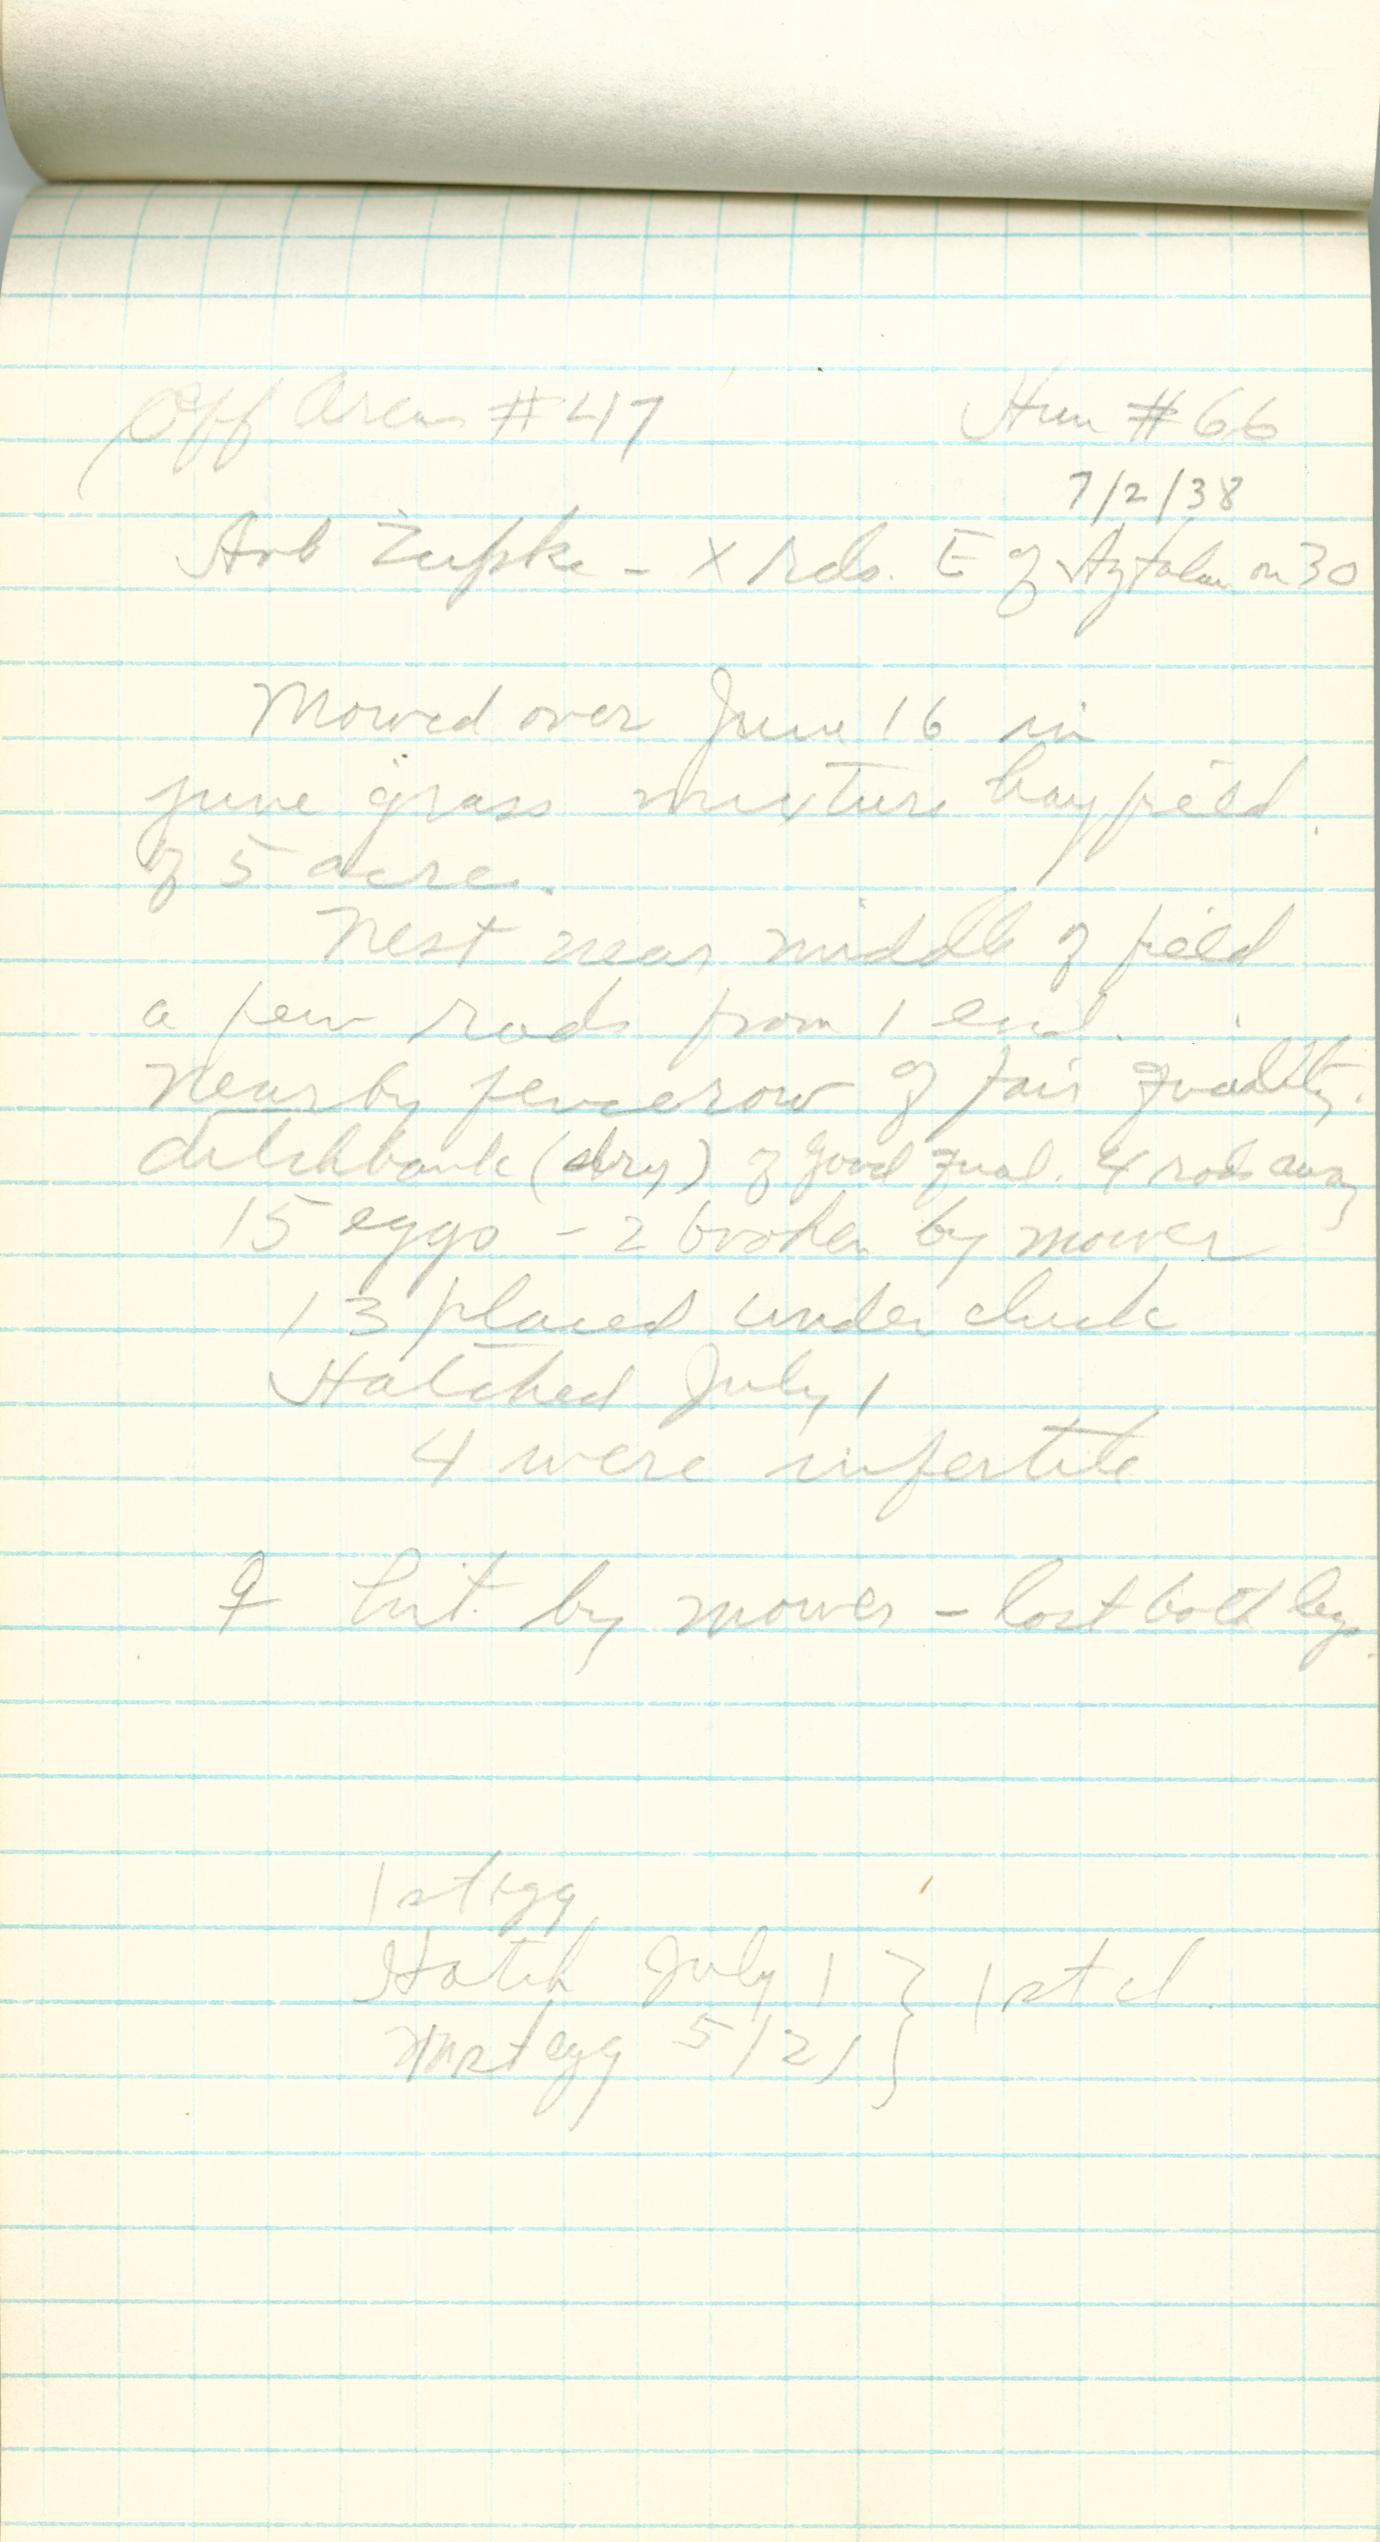 Off Area #47 Hun #66
7/2/38
Art Zupke - X rds. E of Aztalan on 30
Mowed over June 16 in
june grass mixture hayfield
of 5 acre.
Nest near middle of field
a few rods from 1 end.
Nearby fencerow of fair quality.
ditchbank (dry) of good qual. 4 rods away
15 eggs - 2 broken by mower
13 placed under cluck
Hatched July 1
4 were infertile
♀ hit by mower - lost both legs.
1st egg
Hatch July 1 } 1st cl.
egg 5/21